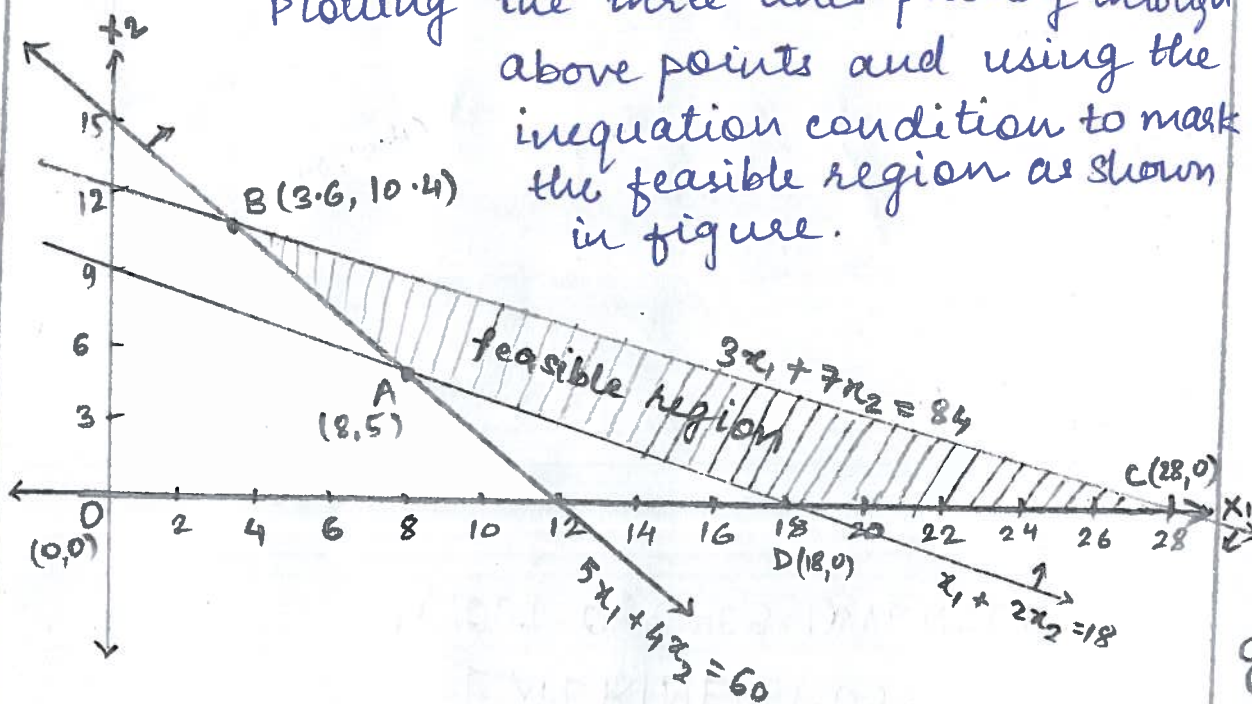 Plotting the three lines through
above points and using the
inequation condition to mark
the feasible region as shown
in figure.
x2
15
12
B (3.6, 10.4)
9
6
3
A
(8,5)
feasible region
3x₁ + 7x₂ = 84
C(28,0)
X₁
O
(0,0)
2 4 6 8 10 12 14 16 18 20 22 24 26 28
D(18,0)
5x₁ + 4x₂ = 60
x₁ + 2x₂ = 18